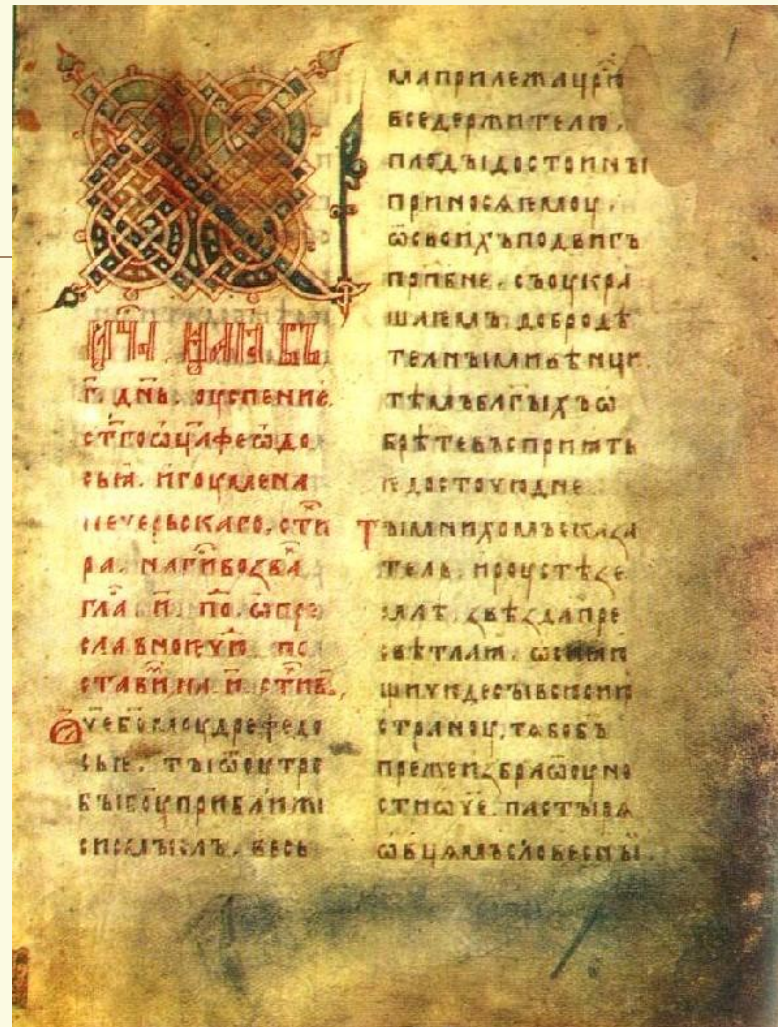 мⷭ҇ца маиѧ въ
г҃ днь. оуспение.
ст҃го ѡц҃а феѡдо
сьꙗ. игоумена
печерьскаго, сти
ра. на ги возва
гла и҃. по. ѡ пре
славное чю по
стави на и. стив,
ѿче б҃омоудре федо
сье. ты ѿ оутро
бы б҃оу приближи
сѧ смысль. весь
ма прилежа цр҃ю
вседержителю,
плоды достоины
приносѧ емоу,
ѿ своихъ подвигъ
прп҃бне. съ оукра
шаемъ добродѣ
тельными вѣнци
тѣмь благыхъ ѡ
брѣте въсприꙗть
е достоуюдне
ты мнихомъ сказа
тель. и роустѣ зе
млѣ звѣзда пре
свѣтлаꙗ. ѡсиꙗю
щи чюдесы всю сию
страноу, тѧ бо бъ
преже избра ѿ оуно
сти ѿче. пастывѧ
ѡвцѧмъ словесны.